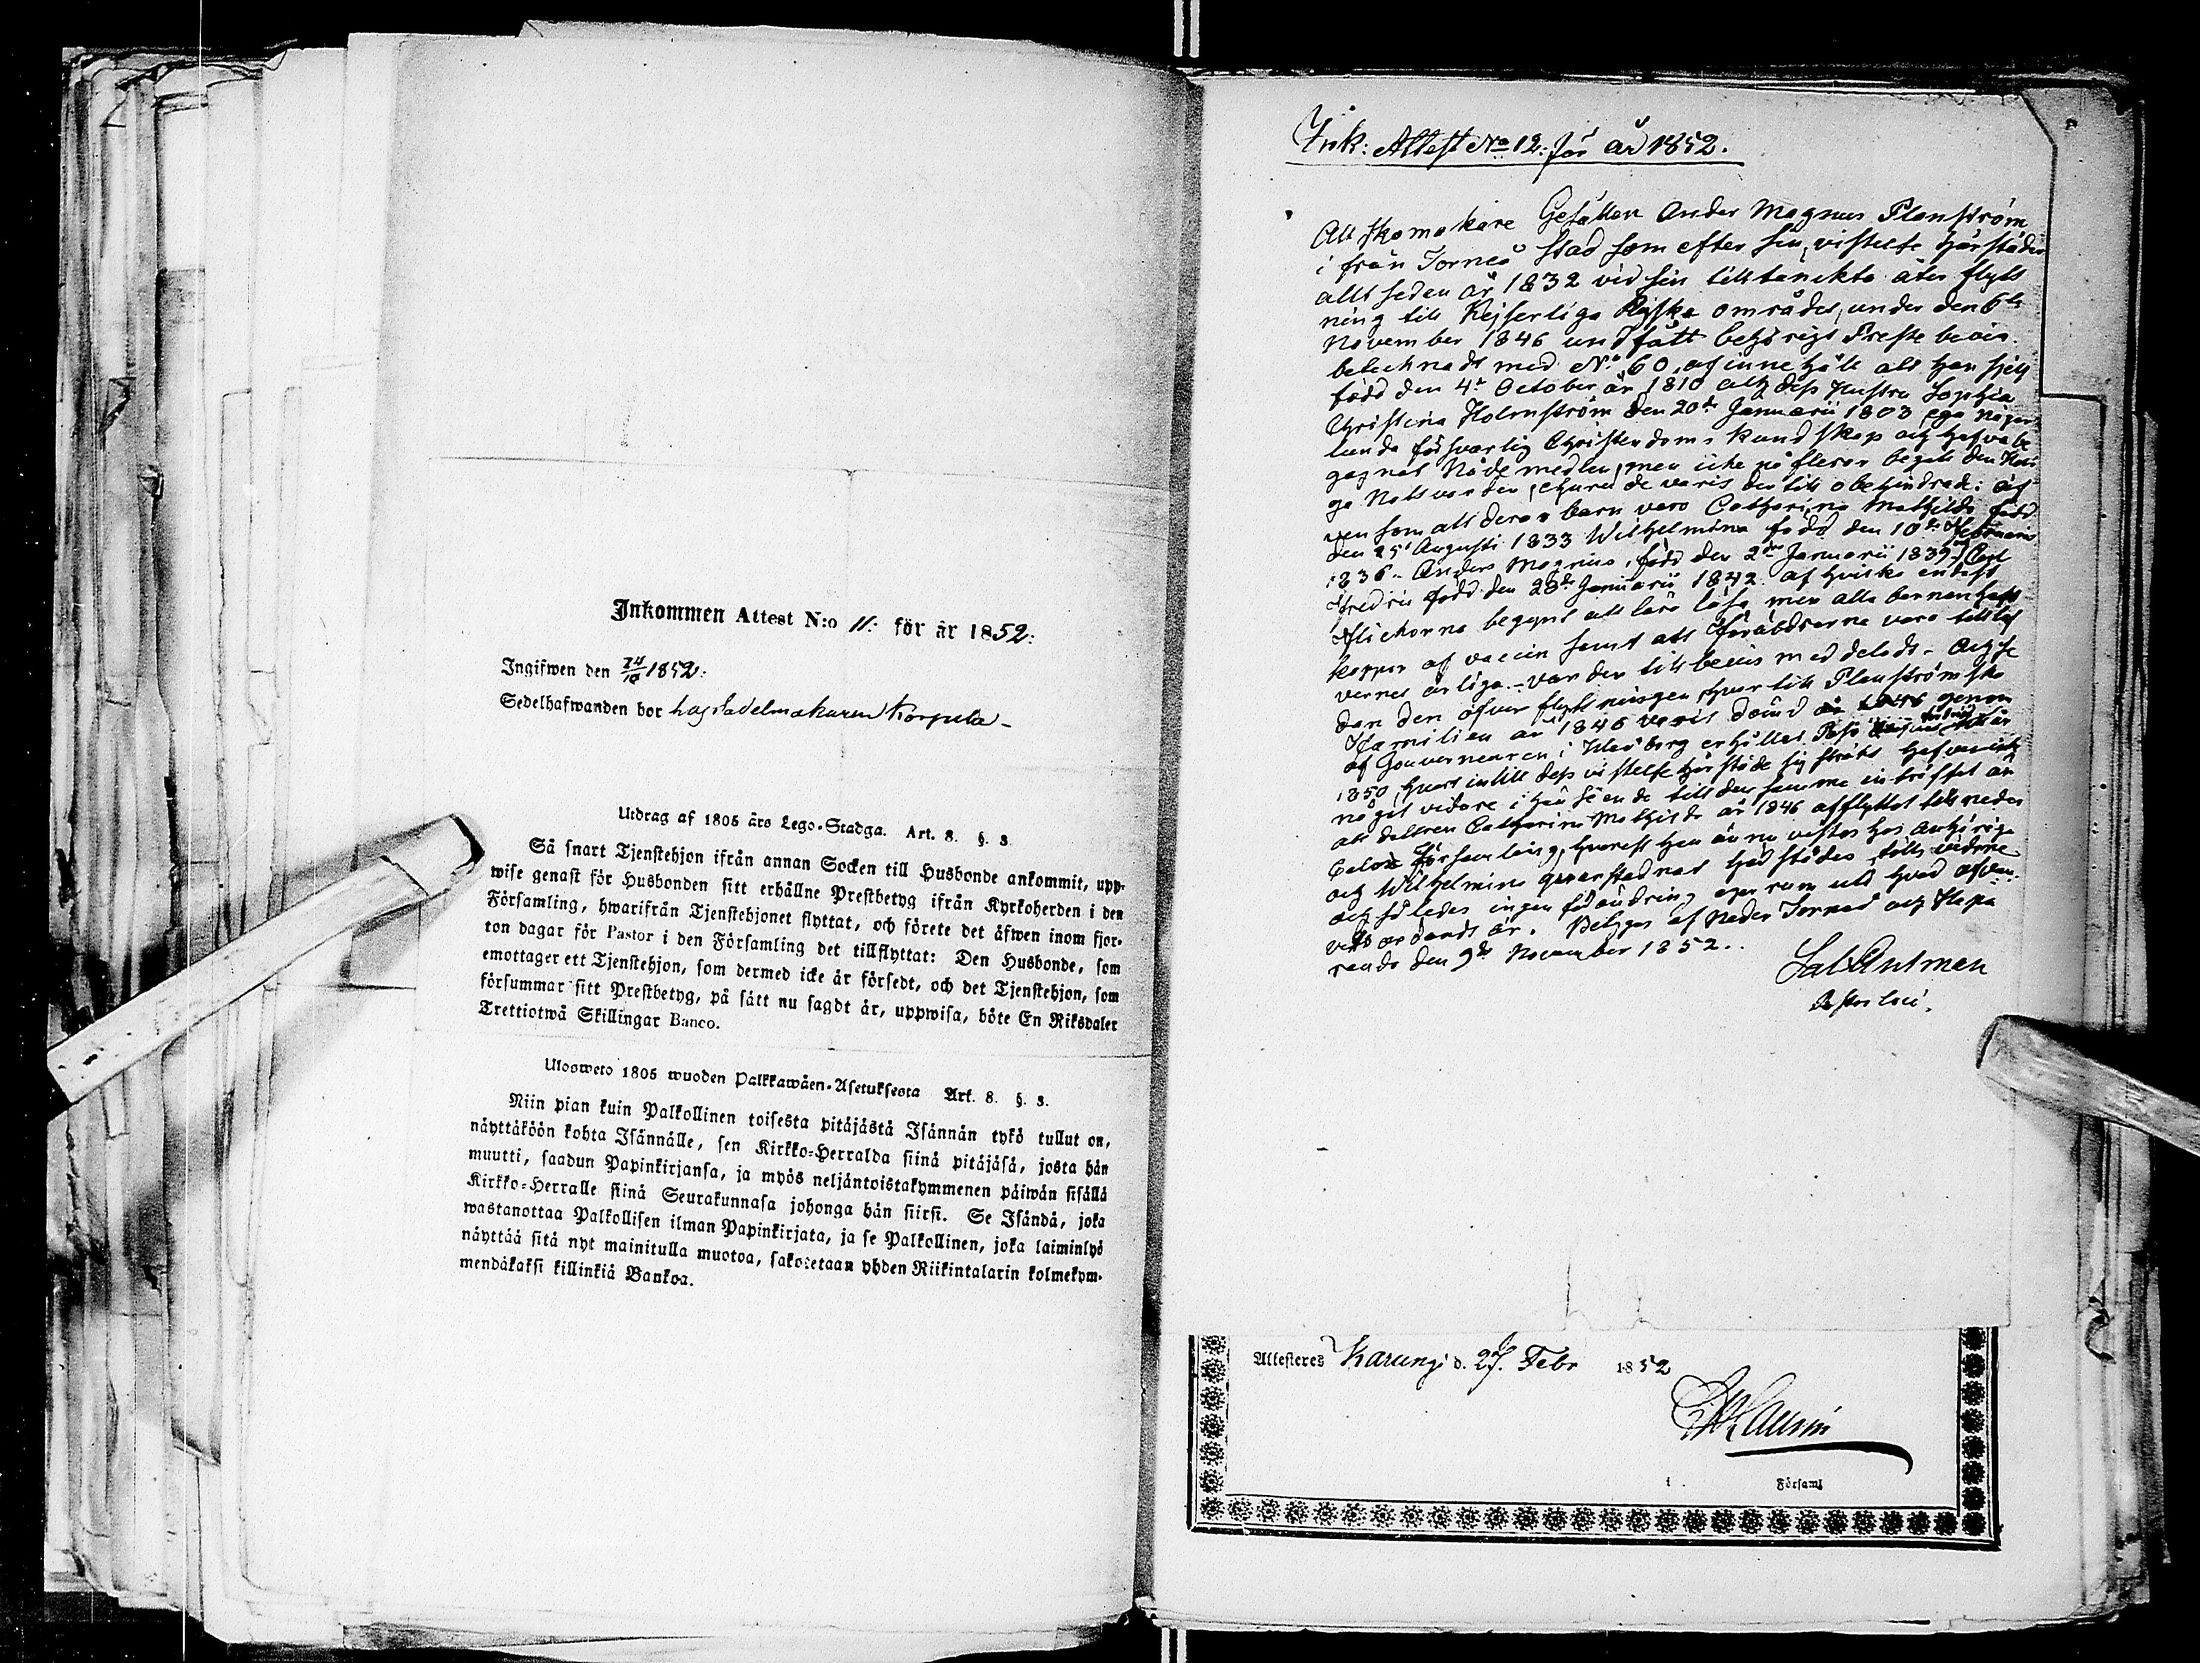 Inkommen Attest N:o 11: för år 1852:
Ingifwen den 24/10 1852:
Sedelhafwanden bor hos sadelmakaren Korpela -
Utdrag af 1805 års Lego-Stadga. Art. 8. §. 3.
Så snart Tjenstehjon ifrån annan Socken till Husbonde ankommit, upp-
wise genast för Husbonden sitt erhållne Prestbetyg ifrån Kyrkoherden i den
Församling, hwarifrån Tjenstehjonet flyttat, och förete det äfwen inom fjor-
ton dagar för Pastor i den Församling det tillflyttat: Den Husbonde, som
emottager ett Tjenstehjon, som dermed icke är försedt, och det Tjenstehjon, som
försummar sitt Prestbetyg, på sätt nu sagdt är, uppwisa, böte En Riksdaler
Trettiotwå Skillingar Banco.
Ulosweto 1805 wuoden Palkkawäen-Asetuksesta Art. 8. §. 3.
Niin pian kuin Palkollinen toisesta pitäjästä Isännän tykö tullut on,
näyttäköön kohta Isännälle, sen Kirkko-Herralda siinä pitäjäsä, josta hän
muutti, saadun Papinkirjansa, ja myös neljäntoistakymmenen päiwän sisällä
Kirkko-Herralle siinä Seurakunnasa johonga hän siirsi. Se Isändä, joka
wastanottaa Palkollisen ilman Papinkirjata, ja se Palkollinen, joka laiminlyö
näyttää sitä nyt mainitulla muotoa, sakotetaan yhden Riikintalarin kolmekym-
mendäkaksi killinkiä Bankoa.
Ink: Attest No 12: för år 1852.
Att skomakare Gesällen Anders Magnus Planström
ifrån Torneå Stad som efter sin vistelse härstädes
allt sedan år 1832 vid sin tilltänckta åter flytt
ning till Kejserliga Ryska området, under den 6te
November 1846 undfått behörigt Preste bevis
betecknadt med No 60, af innehåll att han sjelf
född den 4de October år 1810 och dess Hustru Sophia
Christina Holmström den 20de Januarii 1803 ega någor
lunda försvarlig Christendoms kundskap och hafva be
gagnat Nådemedlen, men icke på flere år begått den Heli
ga Nattvarden, ehuru de varit der till obehindrade: äf
ven som att deras barn voro Catharina Mathilda född
den 25 Augusti 1833 Wilhelmina född den 10de Februarii
1836 - Anders Magnus, född den 2dra Januarii 1839 och Carl
Fredric född den 28de Januarii 1842. af hvilka endast
Flickorna begynt att lära läsa, men alla barnen haft
koppor af vaccin samt att Föräldrarne voro till lef
vernet ärliga. - var den till bevis meddelade - Och se
dan den öfver flyttningen hvartill Planströmska
Familien år 1846 varit dömd genom
af Gouverneuren i Uleåborg erhållet Pass år
1850, hvart intill dess vistelse härstädes sig sträckt hafver icke
något vidare i hänseende till den samma inträffat än
att dottren Catharina Mathilda år 1846 afflyttat till neder
Calix församling, hvarest hon ännu vistas hos Anhörige
och Wilhelmina qvarstadnat härstädes
och således ingen förändring eger rum uti hvad ofvan
. Betyges af Neder Torneå och Hapa
randa den 9de November 1852.
Sal. Antman
Pastor loci.
Attesteres Karungi d. 27. Febr 1852
i Förs:aml